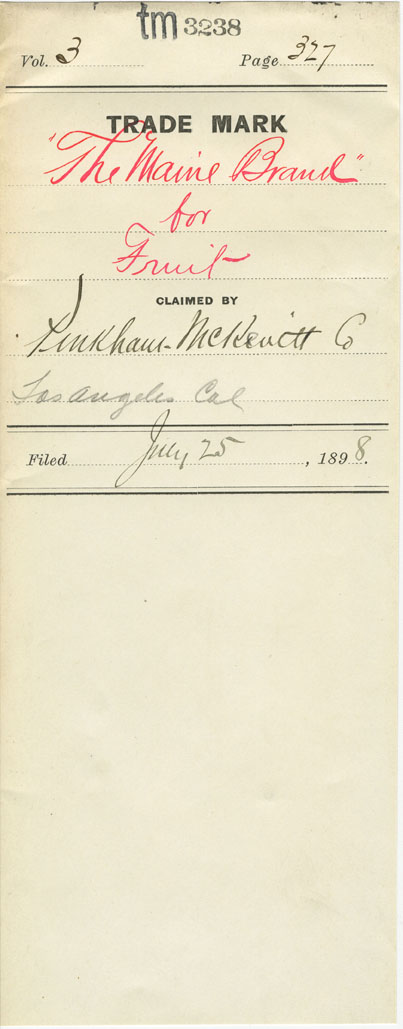 tm 3238
Vol. 3 Page 327
TRADE MARK
"The Maine Brand"
for
Fruit
CLAIMED BY
Pinkham-McKevitt Co
Los Angeles Cal
Filed July 25, 1898.